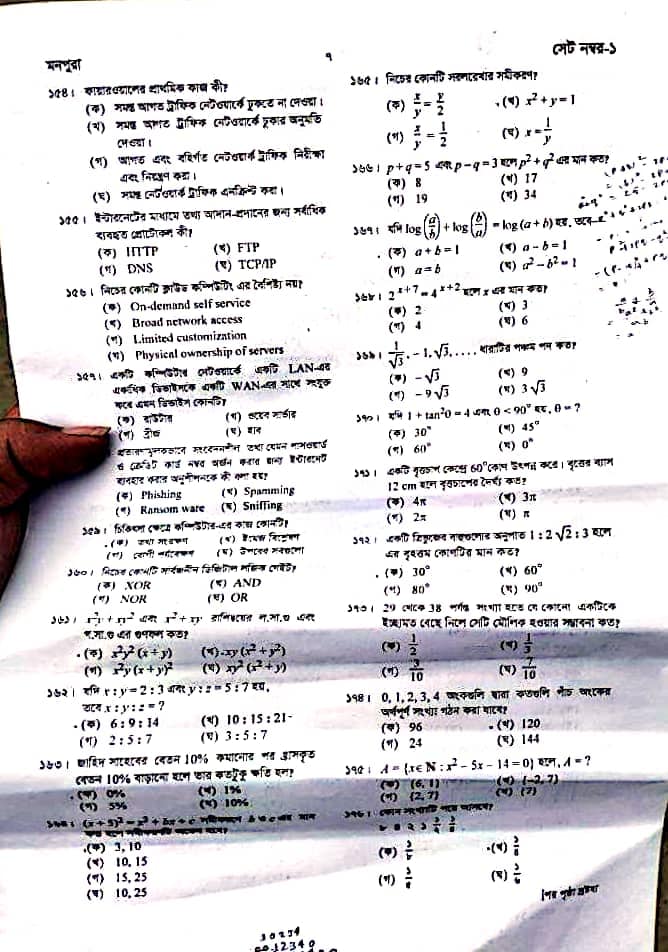 মনপুরা
৭
সেট নম্বর-১
১৫৪। ফায়ারওয়ালের প্রাথমিক কাজ কী?
(ক) সমস্ত আগত ট্রাফিক নেটওয়ার্কে ঢুকতে না দেওয়া।
(খ) সমস্ত আগত ট্রাফিক নেটওয়ার্কে ঢুকার অনুমতি
দেওয়া।
(গ) আগত এবং বহির্গত নেটওয়ার্ক ট্রাফিক নিরীক্ষা
এবং নিয়ন্ত্রণ করা।
(ঘ) সমস্ত নেটওয়ার্ক ট্রাফিক এনক্রিপ্ট করা।
১৫৫। ইন্টারনেটের মাধ্যমে তথ্য আদান-প্রদানের জন্য সর্বাধিক
ব্যবহৃত প্রোটোকল কী?
(ক) HTTP (খ) FTP
(গ) DNS (ঘ) TCP/IP
১৫৬। নিচের কোনটি ক্লাউড কম্পিউটিং এর বৈশিষ্ট্য নয়?
(ক) On-demand self service
(খ) Broad network access
(গ) Limited customization
(ঘ) Physical ownership of servers
১৫৭। একটি কম্পিউটার নেটওয়ার্কে একটি LAN-এর
একাধিক ডিভাইসকে একটি WAN-এর সাথে সংযুক্ত
করে এমন ডিভাইস কোনটি?
(ক) রাউটার (খ) ওয়েব সার্ভার
(গ) ব্রীজ (ঘ) হাব
প্রতারণামূলকভাবে সংবেদনশীল তথ্য যেমন পাসওয়ার্ড
ও ক্রেডিট কার্ড নম্বর অর্জন করার জন্য ইন্টারনেট
ব্যবহার করার অনুশীলনকে কী বলা হয়?
(ক) Phishing (খ) Spamming
(গ) Ransom ware (ঘ) Sniffing
১৫৯। চিকিৎসা ক্ষেত্রে কম্পিউটার-এর কাজ কোনটি?
(ক) তথ্য সংরক্ষণ (খ) ইমেজ বিশ্লেষণ
(গ) রোগী পর্যবেক্ষণ (ঘ) উপরের সবগুলো
১৬০। নিচের কোনটি সার্বজনীন ডিজিটাল লজিক গেইট?
(ক) XOR (খ) AND
(গ) NOR (ঘ) OR
১৬১। x³y + xy³ এবং x² + xy রাশিদ্বয়ের ল.সা.গু এবং
গ.সা.গু এর গুণফল কত?
(ক) x²y²(x + y) (খ) xy(x² + y²)
(গ) x²y(x + y)² (ঘ) xy²(x² + y)
১৬২। যদি x : y = 2 : 3 এবং y : z = 5 : 7 হয়,
তবে x : y : z = ?
(ক) 6 : 9 : 14 (খ) 10 : 15 : 21
(গ) 2 : 5 : 7 (ঘ) 3 : 5 : 7
১৬৩। জাহিদ সাহেবের বেতন 10% কমানোর পর হ্রাসকৃত
বেতন 10% বাড়ানো হলে তার কতটুকু ক্ষতি হল?
(ক) 0% (খ) 1%
(গ) 5% (ঘ) 10%
১৬৪। (x + 5)² = x² + bx + c
(ক) 3, 10
(খ) 10, 15
(গ) 15, 25
(ঘ) 10, 25
১৬৫। নিচের কোনটি সরলরেখার সমীকরণ?
(ক) x/y = y/2 (খ) x² + y = 1
(গ) x/y = 1/2 (ঘ) x = 1/y
১৬৬। p + q = 5 এবং p − q = 3 হলে p² + q² এর মান কত?
(ক) 8 (খ) 17
(গ) 19 (ঘ) 34
১৬৭। যদি log(a/b) + log(b/a) = log(a + b) হয়, তবে-
(ক) a + b = 1 (খ) a − b = 1
(গ) a = b (ঘ) a² − b² = 1
১৬৮। 2^(x+7) = 4^(x+2) হলে x এর মান কত?
(ক) 2 (খ) 3
(গ) 4 (ঘ) 6
১৬৯। 1/√3, − 1, √3, . . . . ধারাটির পঞ্চম পদ কত?
(ক) − √3 (খ) 9
(গ) − 9√3 (ঘ) 3√3
১৭০। যদি 1 + tan²θ = 4 এবং θ < 90° হয়, θ = ?
(ক) 30° (খ) 45°
(গ) 60° (ঘ) 0°
১৭১। একটি বৃত্তচাপ কেন্দ্রে 60°কোণ উৎপন্ন করে। বৃত্তের ব্যাস
12 cm হলে বৃত্তচাপের দৈর্ঘ্য কত?
(ক) 4π (খ) 3π
(গ) 2π (ঘ) π
১৭২। একটি ত্রিভুজের বাহুগুলোর অনুপাত 1 : 2√2 : 3 হলে
এর বৃহত্তম কোণটির মান কত?
(ক) 30° (খ) 60°
(গ) 80° (ঘ) 90°
১৭৩। 29 থেকে 38 পর্যন্ত সংখ্যা হতে যে কোনো একটিকে
ইচ্ছামত বেছে নিলে সেটি মৌলিক হওয়ার সম্ভাবনা কত?
(ক) 1/2 (খ) 1/3
(গ) 3/10 (ঘ) 7/10
১৭৪। 0, 1, 2, 3, 4 অংকগুলি দ্বারা কতগুলি পাঁচ অংকের
অর্থপূর্ণ সংখ্যা গঠন করা যাবে?
(ক) 96 (খ) 120
(গ) 24 (ঘ) 144
১৭৫। A = {x∈ N : x² − 5x − 14 = 0} হলে, A = ?
(ক) {6, 1} (খ) {−2, 7}
(গ) {2, 7} (ঘ) {7}
১৭৬। কোন সংখ্যাটি পরে আসবে?
৮ ৪ ২ ১ ১/২ ১/৪
(ক) ১/৮ (খ) ১/৪
(ঘ) ১/৬
[পর পৃষ্ঠা দ্রষ্টব্য